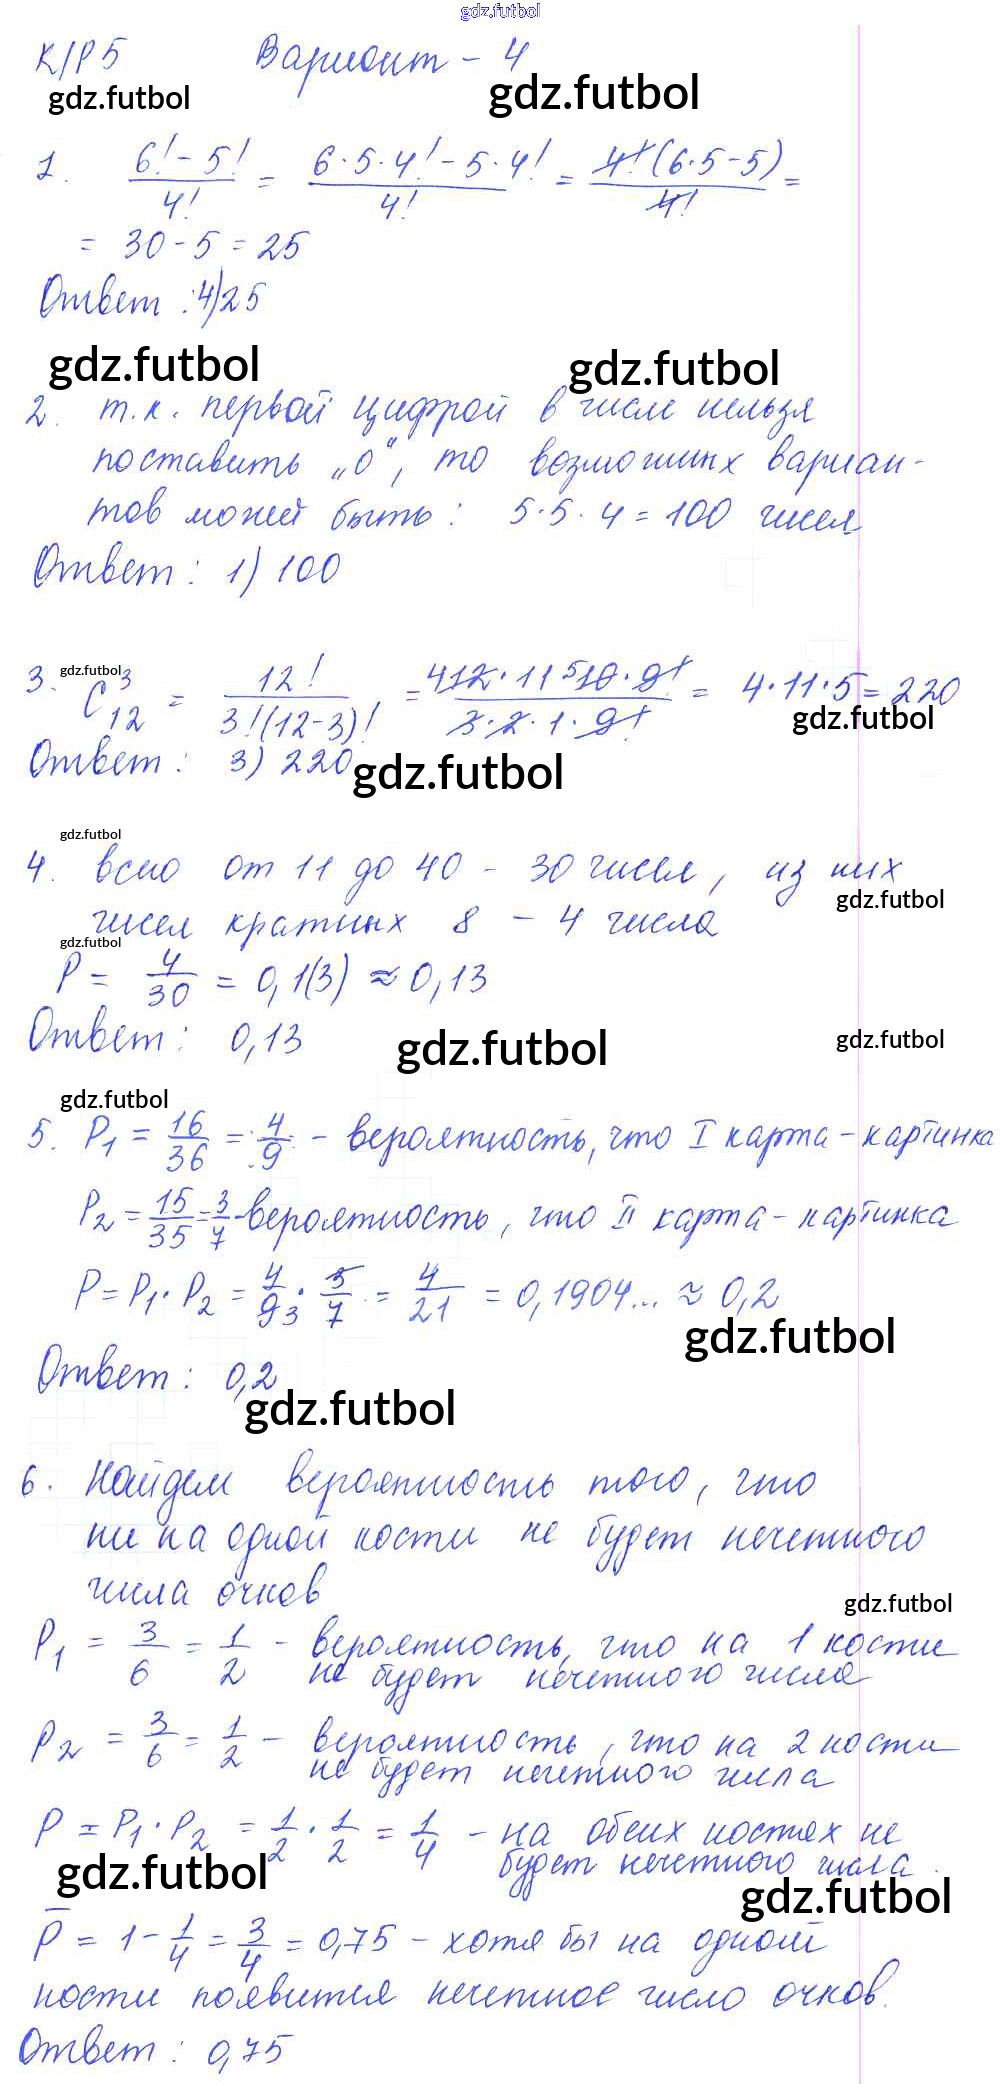 gdz.futbol
К/Р 5 Вариант - 4
gdz.futbol gdz.futbol
1. (6! - 5!)/4! = (6·5·4! - 5·4!)/4! = 4!(6·5-5)/4! =
= 30 - 5 = 25
Ответ: 4) 25
gdz.futbol gdz.futbol
2. т.к. первой цифрой в числе нельзя
поставить „0", то возможных вариан-
тов может быть: 5·5·4 = 100 чисел
Ответ: 1) 100
gdz.futbol
3. C₁₂³ = 12!/(3!(12-3)!) = (4 12·11·5 10·9!)/(3·2·1·9!) = 4·11·5 = 220
gdz.futbol
Ответ: 3) 220
gdz.futbol
gdz.futbol
4. всего от 11 до 40 - 30 чисел, из них
gdz.futbol
чисел кратных 8 - 4 числа
gdz.futbol
P = 4/30 = 0,1(3) ≈ 0,13
Ответ: 0,13
gdz.futbol gdz.futbol
gdz.futbol
5. P₁ = 16/36 = 4/9 - вероятность, что I карта - картинка
P₂ = 15/35 = 3/7 - вероятность, что II карта - картинка
P = P₁·P₂ = 4/9 3 · 3/7 = 4/21 = 0,1904... ≈ 0,2
gdz.futbol
Ответ: 0,2
gdz.futbol
6. Найдем вероятность того, что
ни на одной кости не будет нечетного
числа очков
gdz.futbol
P₁ = 3/6 = 1/2 - вероятность, что на 1 кости
не будет нечетного числа
P₂ = 3/6 = 1/2 - вероятность, что на 2 кости
не будет нечетного числа
P = P₁·P₂ = 1/2 · 1/2 = 1/4 - на обеих костях не
будет нечетного числа.
gdz.futbol gdz.futbol
P̅ = 1 - 1/4 = 3/4 = 0,75 - хотя бы на одной
кости появится нечетное число очков.
Ответ: 0,75